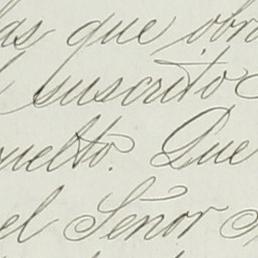 las que obra
suscrito
uelto. Que
el Señor